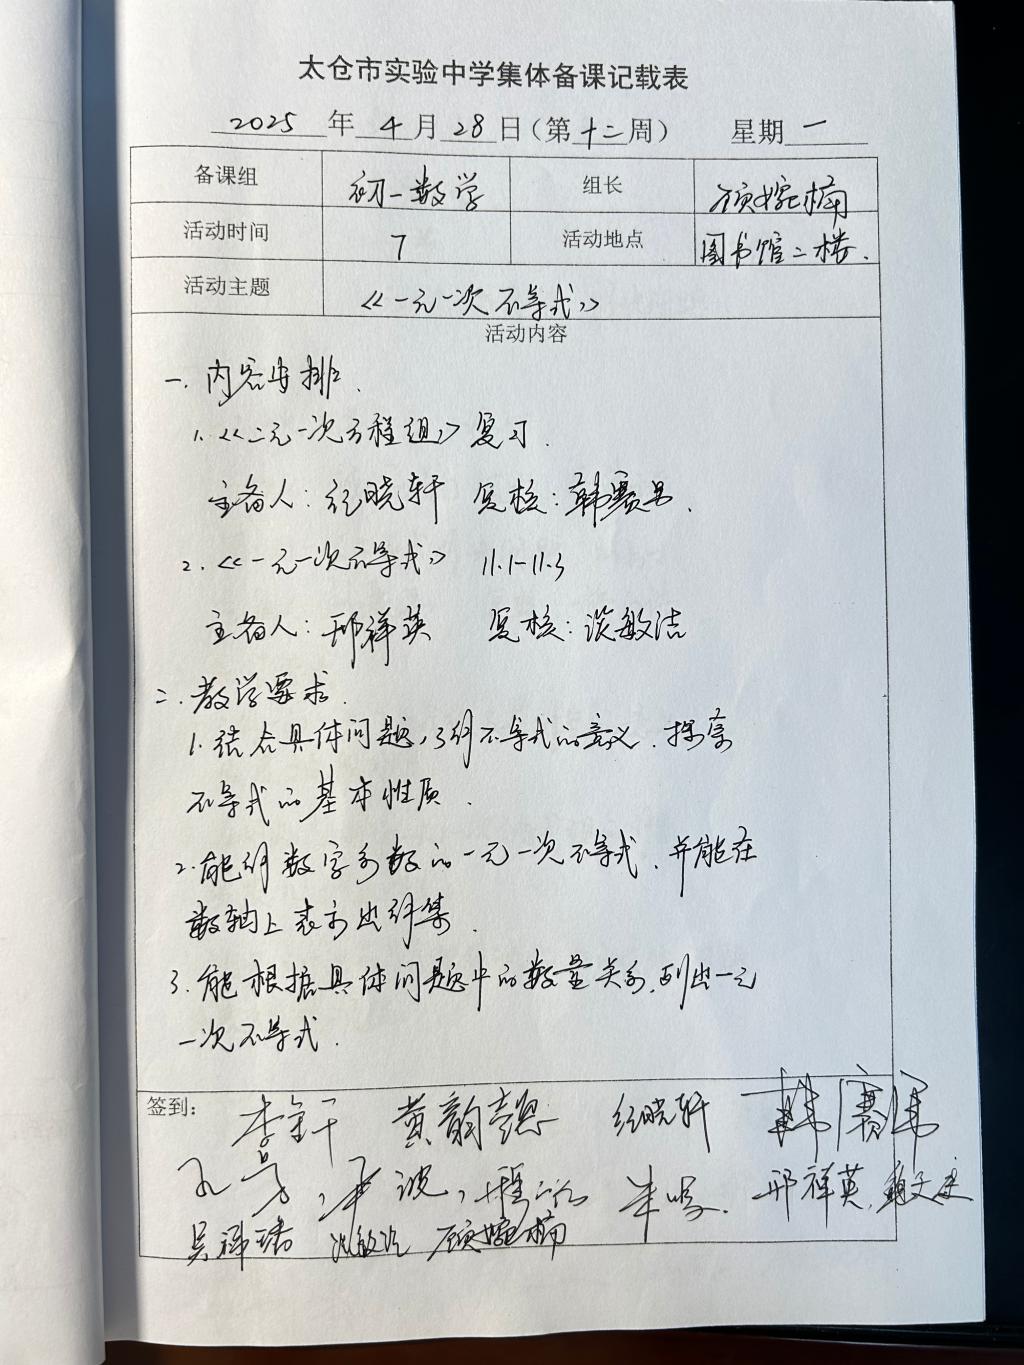 太仓市实验中学集体备课记载表
2025年4月28日(第十二周) 星期一
备课组 初一数学 组长 顾婉楠
活动时间 7 活动地点 图书馆二楼.
活动主题 《一元一次不等式》
活动内容
一. 内容安排.
1. 《二元一次方程组》复习.
主备人: 晓轩 复核: 韩赛男.
2. 《一元一次不等式》 11.1-11.3
主备人: 邢祥英 复核: 谈敏洁
二. 教学要求.
1. 结合具体问题,了解不等式的意义.探索
不等式的基本性质.
2. 能解数字系数的一元一次不等式.并能在
数轴上表示出解集.
3. 能根据具体问题中的数量关系.列出一元
一次不等式.
签到: 黄韵 晓轩 韩赛
邢祥英.
吴 顾婉楠